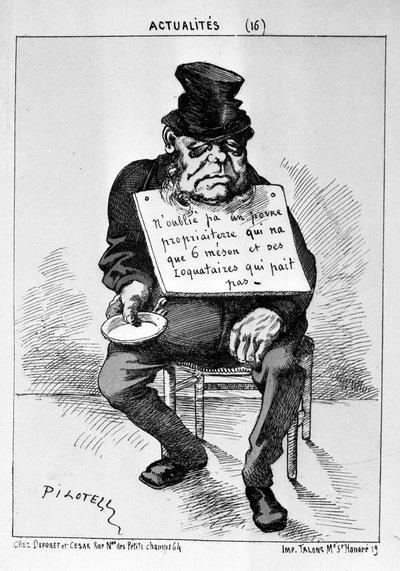 ACTUALITÉS (16)
N'oublié pa un povre
propriaiterre qui na
que 6 méson et des
loquataires qui pait
pas_
PILOTELL
CHEZ DEFORET et CESAR Rue Nve des Petits champs 64
IMP. TALONS Mn St Honoré 19